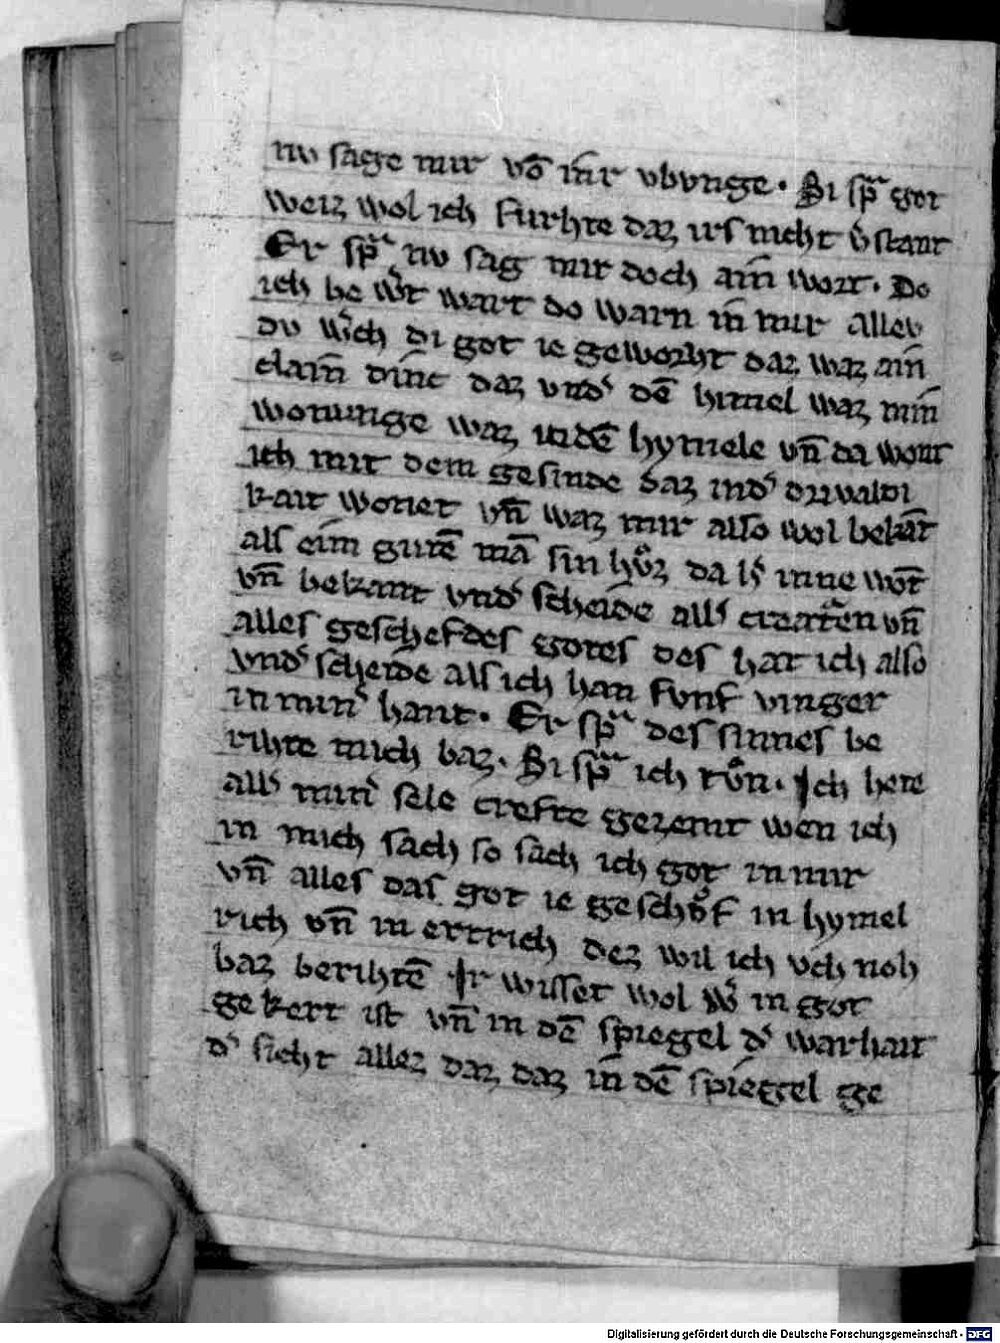 nv sage mir vō iŕr vbvnge · Si spᵃ got
weiz wol ich furhte daz irs nicht v̓stant
Er spᵃ nv sag mir doch ain wort · Do
ich be w̓t wart do warn in mir allev
dv w̓ch di got ie geworht daz waz ain
clain dinc daz vnd̓ dē himel waz min
wonunge waz indē hymele vn̄ da wont
ich mit dem gesinde daz ind̓ drivaldi
kait wonet vn̄ waz mir also wol bekāt
als eim gutē mā sin hvͦz da h̓ inne wōt
vn̄ bekant vnd̓ scheide all̓ creatᵃ̄en vn̄
alles geschefdes gotes des hat ich also
vnd̓ scheide als ich han fvnf vinger
in min̓ hant · Er spᵃ des sinnes be
rihte mich baz · Si spᵃ ich tvͦn · Ich hete
all̓ min̓ sele crefte gezemt wen ich
in mich sach so sach ich got in mir
vn̄ alles das got ie geschvͦf in hymel
rich vn̄ in ertrich dez wil ich vch noh
baz berihtē Ir wisset wol w̓ in got
gekert ist vn̄ in dē spiegel d̓ warhait
d̓ sicht allez daz daz in dē spiegel ge
Digitalisierung gefördert durch die Deutsche Forschungsgemeinschaft - DFG